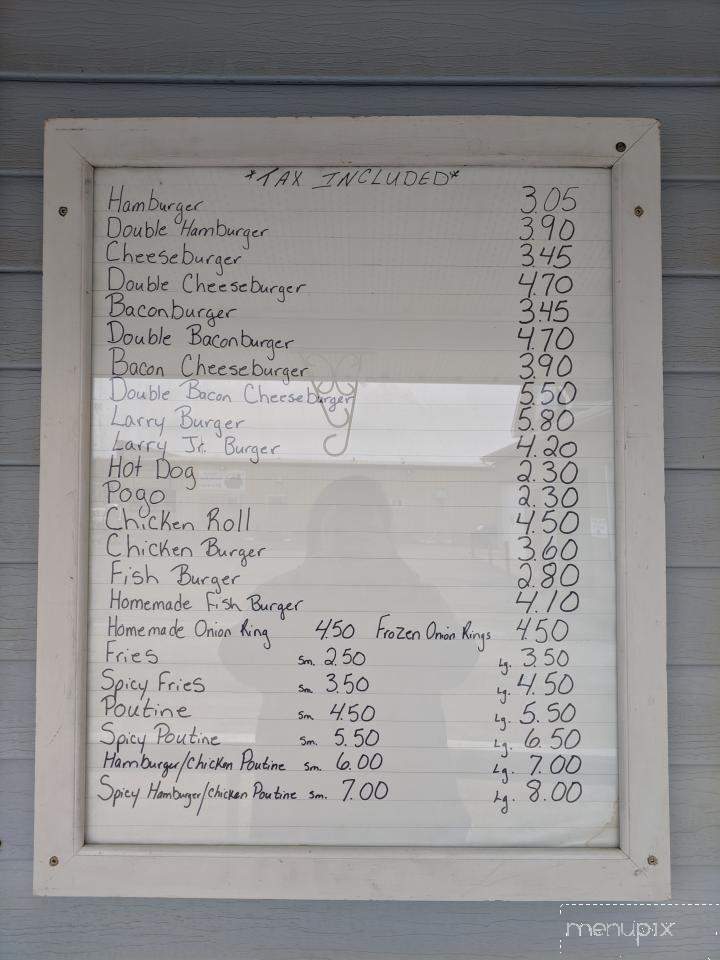 *TAX INCLUDED*
Hamburger 3.05
Double Hamburger 3.90
Cheeseburger 3.45
Double Cheeseburger 4.70
Baconburger 3.45
Double Baconburger 4.70
Bacon Cheeseburger 3.90
Double Bacon Cheeseburger 5.50
Larry Burger 5.80
Larry Jr. Burger 4.20
Hot Dog 2.30
Pogo 2.30
Chicken Roll 4.50
Chicken Burger 3.60
Fish Burger 2.80
Homemade Fish Burger 4.10
Homemade Onion Ring 4.50 Frozen Onion Rings 4.50
Fries sm. 2.50 Lg. 3.50
Spicy Fries sm. 3.50 Lg. 4.50
Poutine sm. 4.50 Lg. 5.50
Spicy Poutine sm. 5.50 Lg. 6.50
Hamburger/Chicken Poutine sm. 6.00 Lg. 7.00
Spicy Hamburger/Chicken Poutine sm. 7.00 Lg. 8.00
menupix